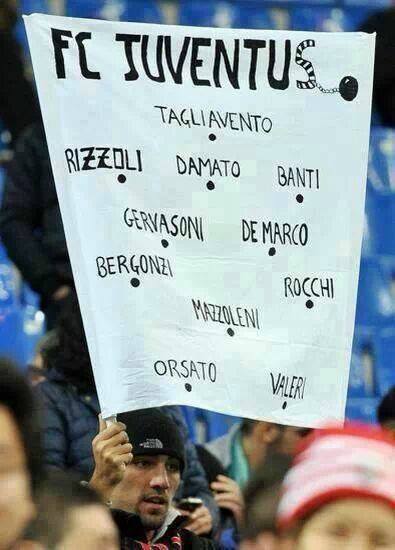 FC JUVENTUS
TAGLIAVENTO
RIZZOLI DAMATO BANTI
GERVASONI DE MARCO
BERGONZI ROCCHI
MAZZOLENI
ORSATO VALERI
THE NORTH FACE